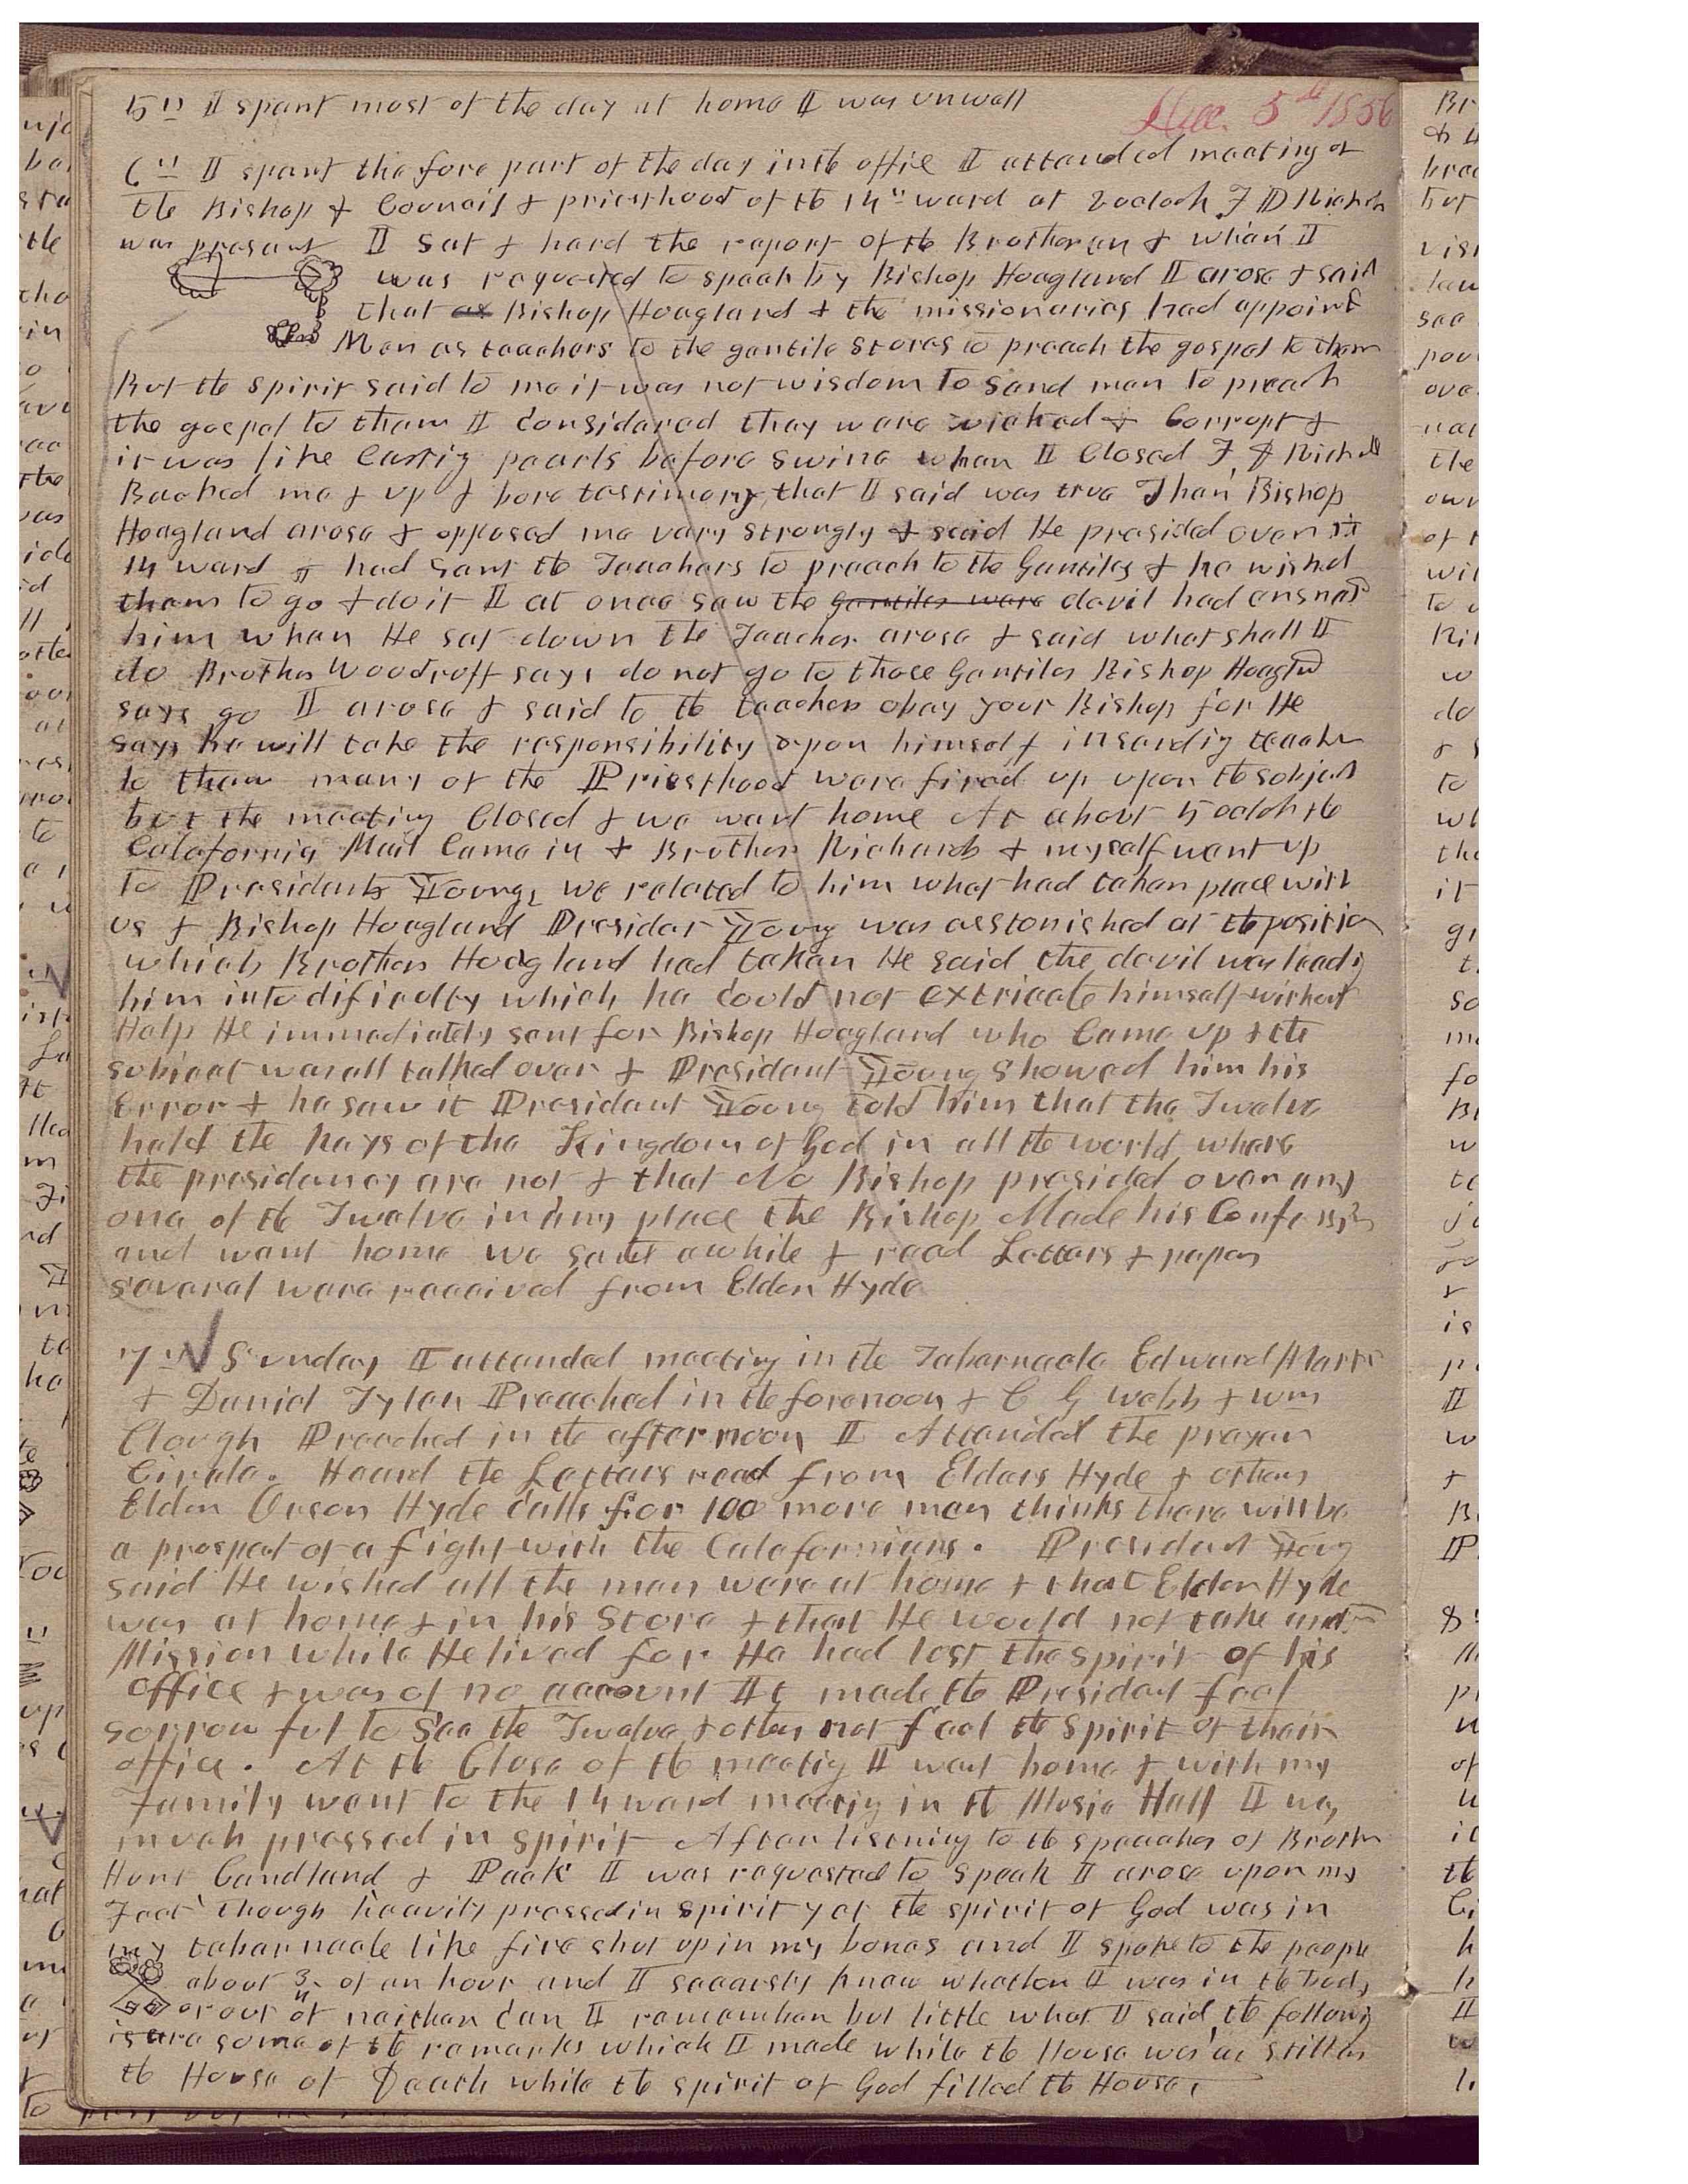 Dec. 5th 1856
5th I spent most of the day at home I was unwell
6th I spent the fore part of the day in the office I attended meeting of
the Bishop & Council & priesthood of the 14th ward at 2 oclock F D Richards
was present I sat & hard the report of the Brotheren & when I
was requested to speak by Bishop Hoagland I arose & said
that as Bishop Hoagland & the missionaries had appoint
Men as teachers to the gentile stores to preach the gospel to them
But the spirit said to me it was not wisdom to send men to preach
the gospel to them I considered they were wicked & Corrupt &
it was like Casting pearls before swine when I Closed F. D Richards
Backed me & up & bore testimony that I said was true Then Bishop
Hoagland arose & opposed me very strongly & said He presided over the
14 ward & had sent the Teachers to preach to the Gentiles & he wished
them to go & do it I at once saw the gentiles were devil had ensnared
him when He sat down the Teacher arose & said what shall I
do Brother Woodruff says do not go to those Gentiles Bishop Hoagland
says go I arose & said to the teachers obey your Bishop for He
says he will take the responsibility upon himself in sending teachers
to them many of the Priesthood were fired up upon the subject
but the meeting Closed & we went home At about 5 oclok the
Calafornia Mail Came in & Brother Richards & myself went up
to Presidents Youngs we related to him what had taken place with
us & Bishop Hoagland President Young was asstonished at the position
which Brother Hoagland had taken He said the devil was leading
him into dificulty which he could not extricate himself without
Help He immediately sent for Bishop Hoagland who Came up & the
subject was all talked over & President Young showed him his
Error & he saw it President Young told him that the Twelve
held the keys of the Kingdom of God in all the world where
the presidency are not & that No Bishop presided over any
one of the Twelve in any place the Bishop Made his Confession
and went home we sat awhile & read Letters & papers
several were received from Elder Hyde
7th Sunday I attended meeting in the Tabernacle Edward Martin
& Daniel Tyler Preached in the forenoon & C G Webb & Wm
Clough Preached in the afternoon I Attended the prayer
Circle. Heard the Letters read from Elders Hyde & others
Elder Orson Hyde Calls for 100 more men thinks there will be
a prospect of a fight with the Calafornians. President Young
said He wished all the men were at home & that Elder Hyde
was at home & in his Store & that He would not take another
Mission while He lived for He had lost the spirit of his
office & was of no account It made the President feel
sorrowful to See the Twelve & others not feel the spirit of their
office. At the Close of the meeting I went home & with my
Family went to the 14 ward meeting in the Music Hall I was
much pressed in spirit After listning to the speeches of Brother
Hunt Candland & Peck I was requested to speak I arose upon my
Feet though heavily pressed in spirit yet the spirit of God was in
my tabernacle like fire shut up in my bones and I spoke to the people
about 3/4 of an hour and I scearsly knew whether I was in the body
or out of it neither Can I remember but little what I said the following
is are some of the remarks which I made while the House was as still as
the House of Death while the spirit of God filled the House,